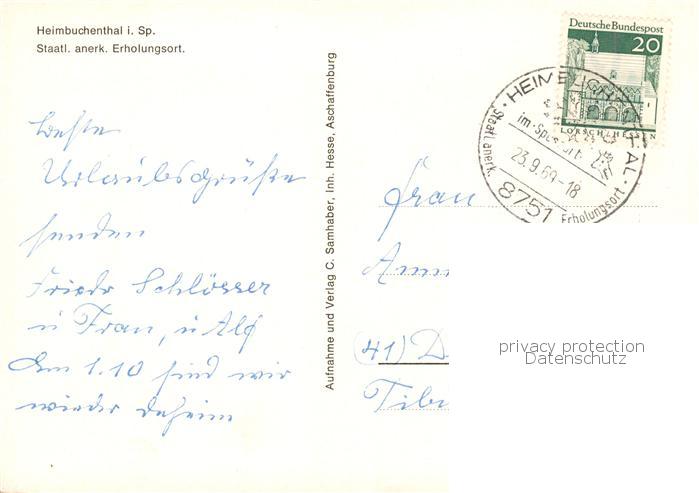 Heimbuchenthal i. Sp.
Staatl. anerk. Erholungsort.
Beste
Urlaubsgrüße
senden
Friedr Schlösser
u Frau, u Alf
Am 1.10 sind wir
wieder daheim
Aufnahme und Verlag C. Samhaber, Inh. Hesse, Aschaffenburg
Deutsche Bundespost
20
LORSCH/HESSEN
im Spessart
Staatl. anerk.
23.9.69-18
8751
Erholungsort
Frau
(41) D
Tib
privacy protection
Datenschutz